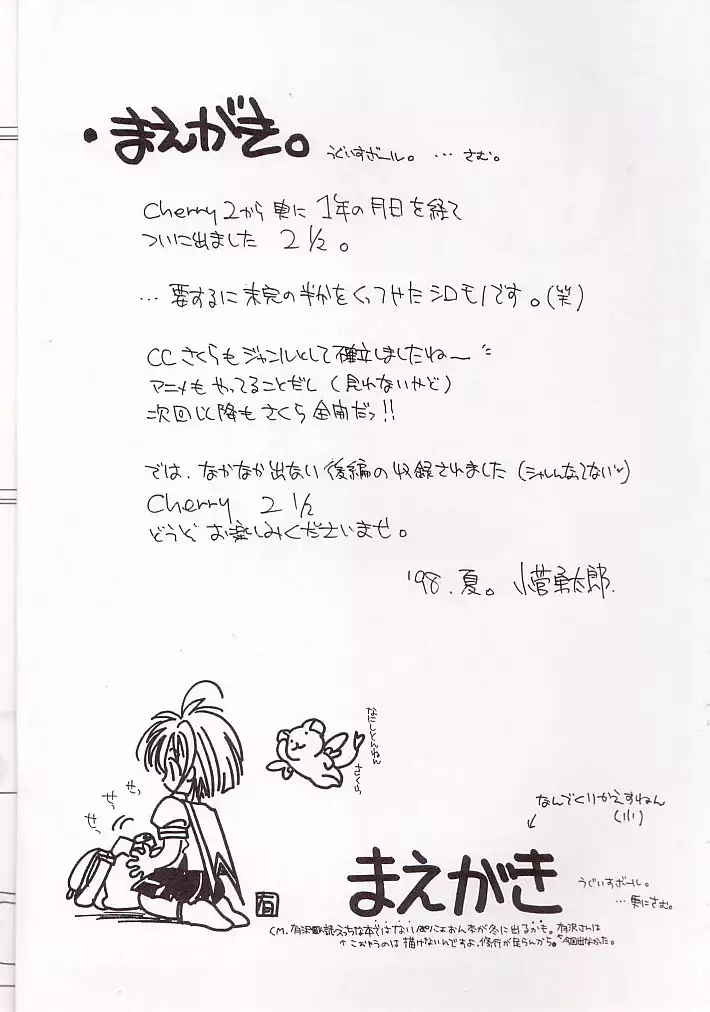 ・まえがき。
うぐいすボール。 … さむ。
Cherry 2から 更に 1年の月日を経て
ついに出ました 2 1/2。
… 要するに未完の半分をくっつけたシロモノです。(笑)
CCさくらもジャンルとして確立しましたね〜
アニメもやってることだし (見れないけど)
次回以降もさくら全開だっ!!
では、なかなか出ない後編の収録されました (シャレんなってない)
Cherry 2 1/2
どうぞ お楽しみくださいませ。
'98.夏。 小菅勇太郎.
なにしとんねん
さくら
せっ
せっ
せっ
なんでくりかえすねん
(小)
↓
まえがき
うぐいすボール。
… 更にさむ。
CM. 有沢 えっちな本ではない ぷにょおん本が冬に出るかも。有沢さんは
↑ こおゆうのは描けないんですよ、修行が足らんから。 今回出なかった。